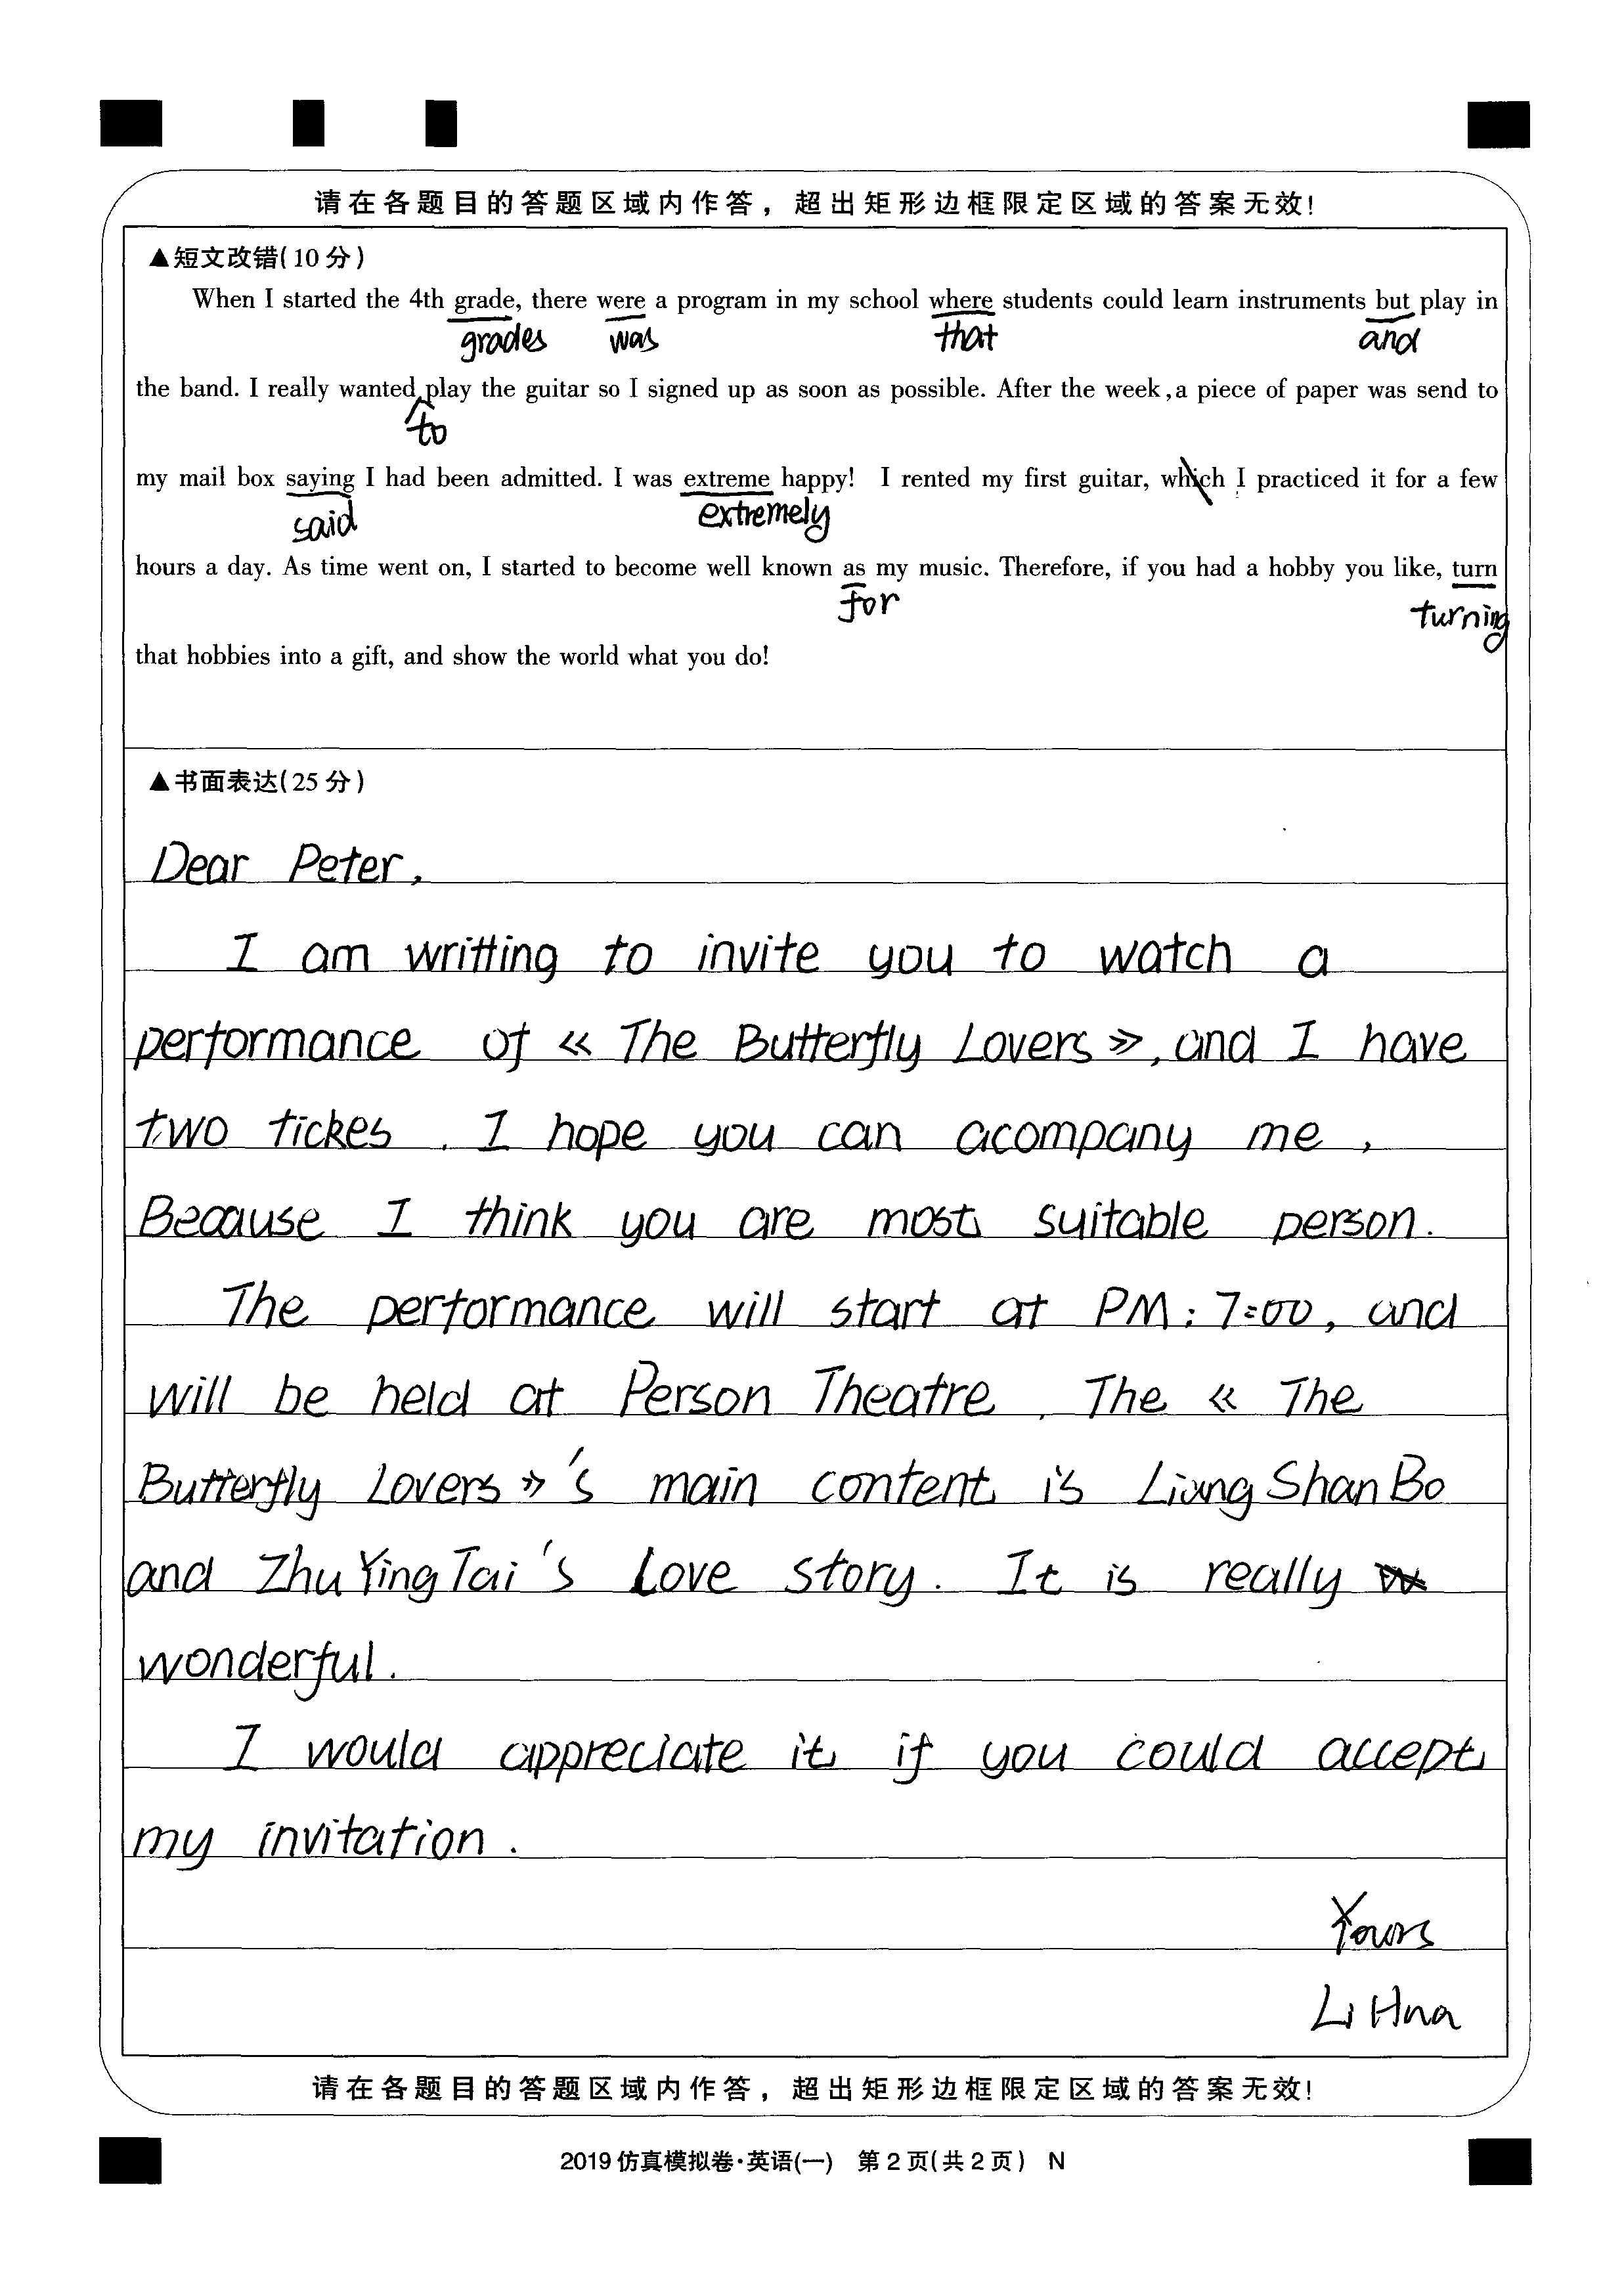 请在各题目的答题区域内作答，超出矩形边框限定区域的答案无效！
▲短文改错(10分)
When I started the 4th grade, there were a program in my school where students could learn instruments but play in
grades was that and
the band. I really wanted play the guitar so I signed up as soon as possible. After the week,a piece of paper was send to
to
my mail box saying I had been admitted. I was extreme happy! I rented my first guitar, which I practiced it for a few
said extremely
hours a day. As time went on, I started to become well known as my music. Therefore, if you had a hobby you like, turn
for turning
that hobbies into a gift, and show the world what you do!
▲书面表达(25分)
Dear Peter,
I am writting to invite you to watch a
performance of « The Butterfly Lovers», and I have
two tickes . I hope you can acompany me ,
Because I think you are most suitable person.
The performance will start at PM: 7:00, and
will be held at Person Theatre. The « The
Butterfly Lovers»'s main content is Liang Shan Bo
and Zhu Ying Tai's Love story. It is really
wonderful.
I would appreciate it if you could accept
my invitation.
Yours
Li Hua
请在各题目的答题区域内作答，超出矩形边框限定区域的答案无效！
2019仿真模拟卷·英语(一) 第2页(共2页) N